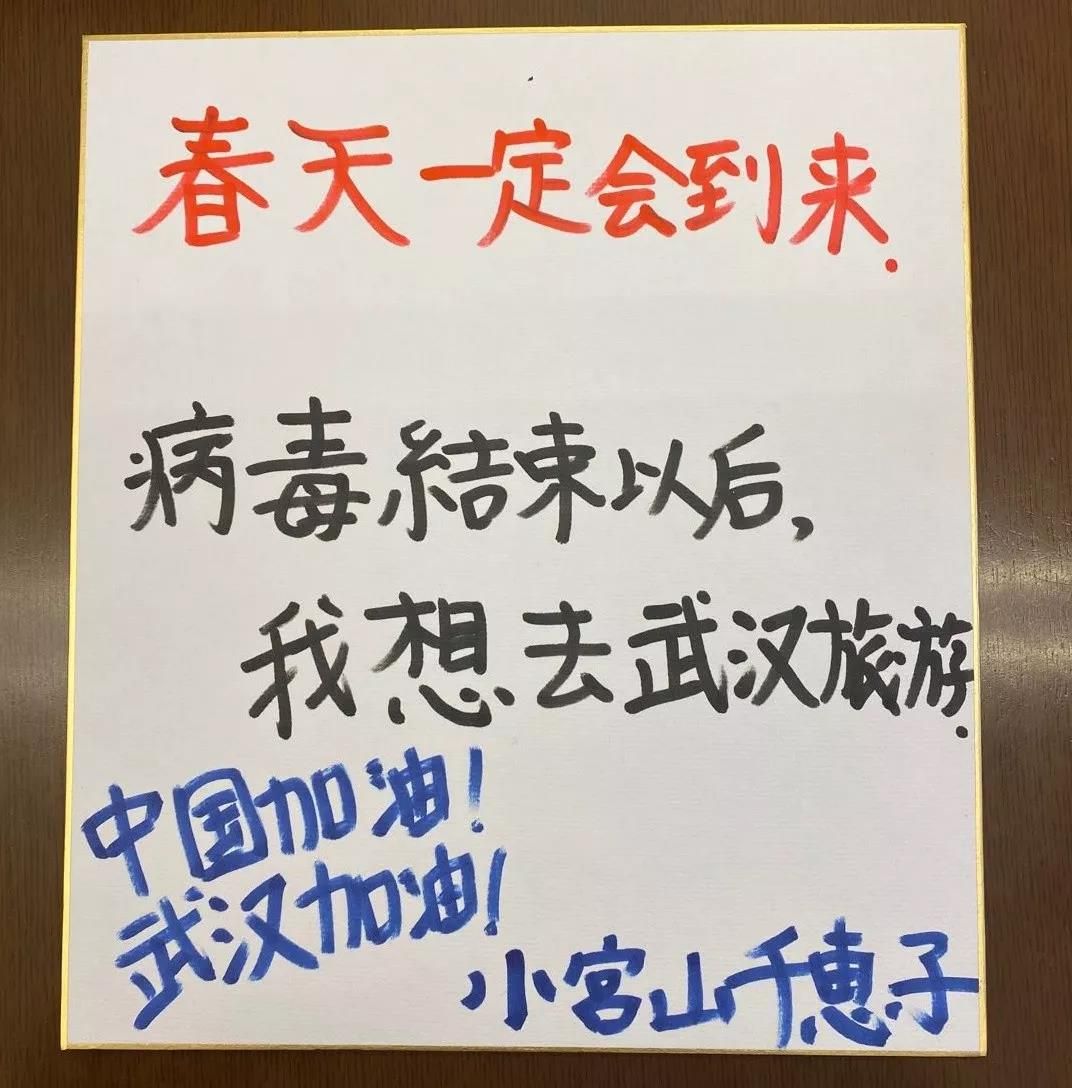 春天一定会到来.
病毒結束以后,
我想去武汉旅游.
中国加油!
武汉加油!
小宮山千恵子